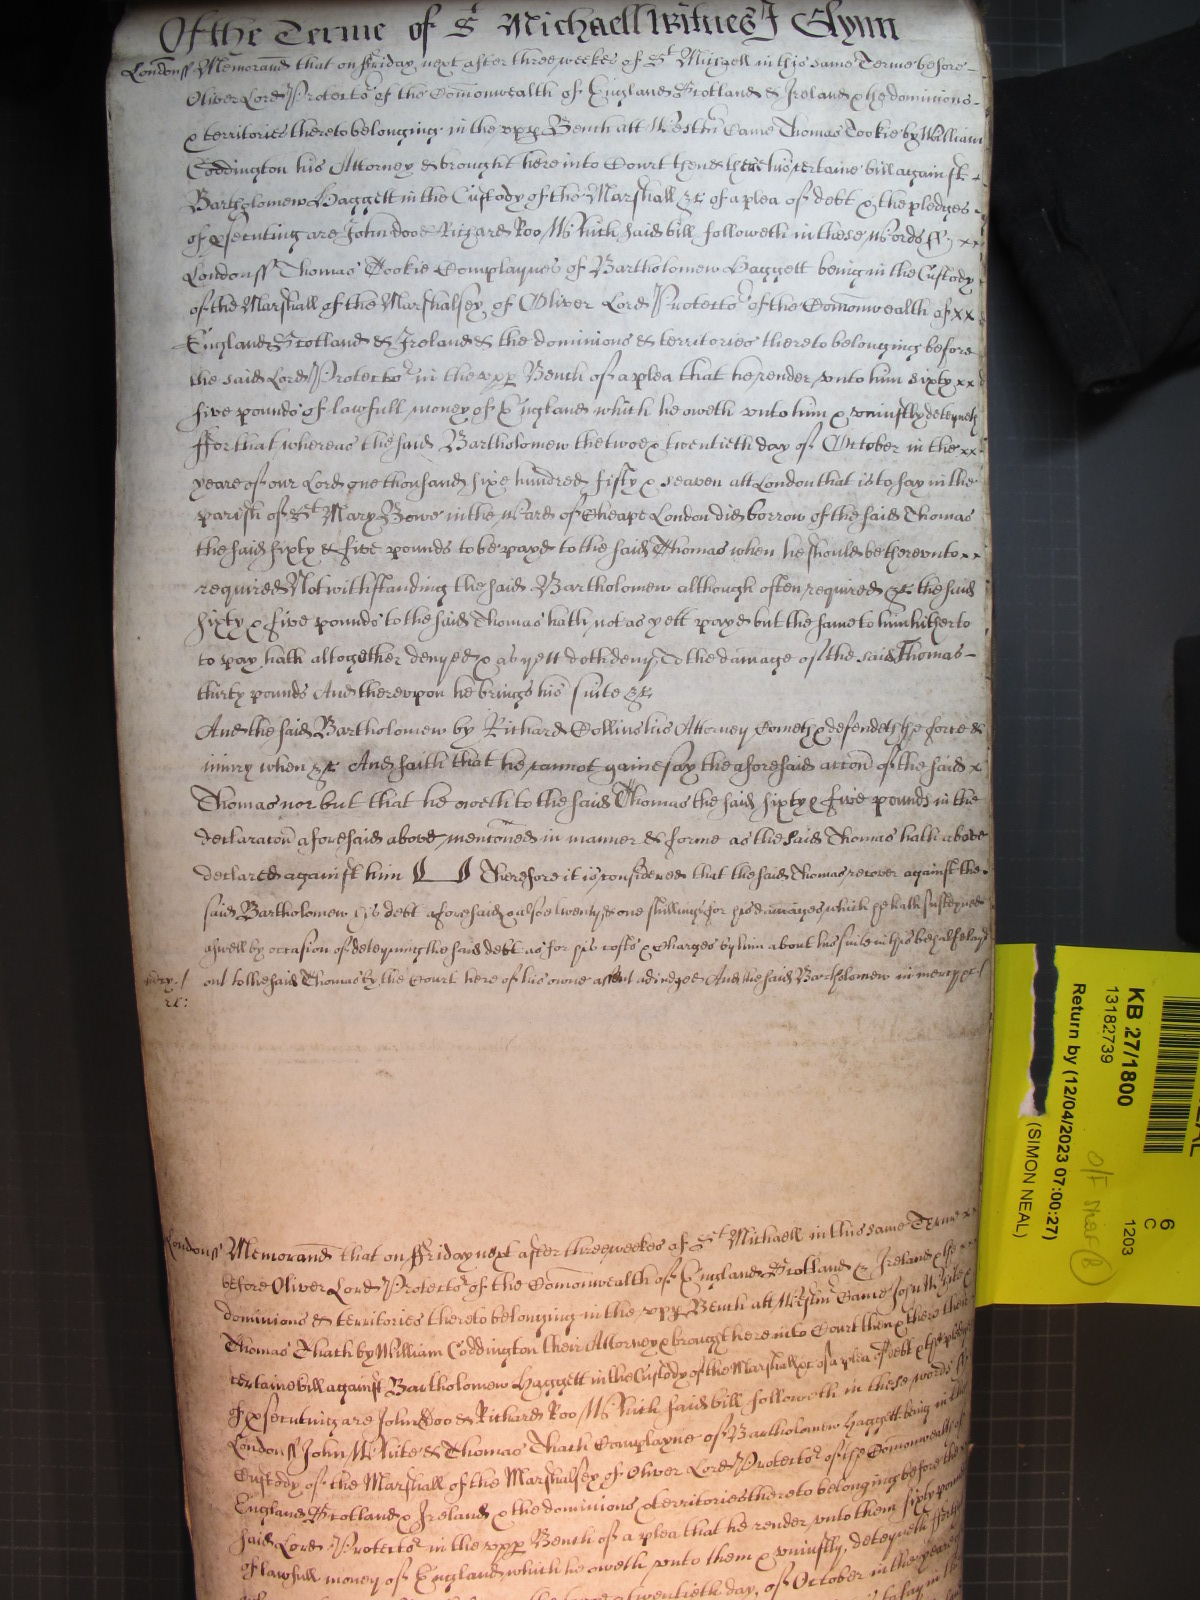 Of the Terme of St Michaell Witnes J Glynn
Londonss Memorand that on ffriday next after three weekes of St Michaell in this same Terme before
Oliver Lord Protector of the Comonwealth of England Scotland & Ireland & the dominions
& territories thereto belonging in the upp Bench att Westmr Came Thomas Cookie by William
Coddington his Attorney & brought here into Court then & there his certaine bill against
Bartholomew Haggett in the Custody of the Marshall &c of a plea of debt & the pledges
of psecuting are John doo & Richard Roo Which said bill followeth in these words ss xx
Londonss Thomas Cookie Complaynes of Bartholomew Haggett being in the Custody
of the Marshall of the Marshalsey of Oliver Lord Protector of the Comonwealth of xx
England Scotland & Ireland & the dominions & territories thereto belonging before
the said Lord Protector in the upp Bench of a plea that he render unto him sixty xx
five pounds of lawfull money of England which he oweth unto him & uniustly deteyneth
ffor that whereas the said Bartholomew the two & twentieth day of October in the xx
yeare of our Lord one thousand sixe hundred fifty & seaven att London that is to say in the
parish of St Mary Bowe in the Ward of Cheape London did borrow of the said Thomas
the said sixty & five pounds to be payd to the said Thomas when he should be thereunto
required Notwithstanding the said Bartholomew although often required &c the said
sixty & five pounds to the said Thomas hath not as yett payd but the same to him hitherto
to pay hath altogether denyed & as yett doth deny To the damage of the said Thomas
thirty pounds And thereupon he brings his suite &c
And the said Bartholomew by Richard Collins his Attorney Cometh & defendeth the force &
iniury when &c And saith that he cannot gainesay the aforesaid accon of the said x
Thomas nor but that he oweth to the said Thomas the said sixty & five pounds in the
declaracon aforesaid above mencioned in manner & forme as the said Thomas hath above
declared against him Therefore it is considered that the said Thomas recover against the
said Bartholomew his debt aforesaid & alsoe twenty & one shillings for his damages which he hath susteyned
aswell by occasion of deteyning the said debt as for his costs & Charges by him about his suite in this behalfe layd
out to the said Thomas by the Court here of his owne assent adiudged And the said Bartholomew in mercy &c
mercy
&c:
Londonss Memorand that on ffriday next after three weekes of St Michaell in this same Terme xx
before Oliver Lord Protector of the Comonwealth of England Scotland & Ireland & the
dominions & territories thereto belonging in the upp Bench att Westmr Came John White &
Thomas Thach by William Coddington their Attorney & brought here into Court then & there their
certaine bill against Bartholomew Haggett in the Custody of the Marshall &c of a plea of debt & the pledges
of psecuting are John Doo & Richard Roo Which said bill followeth in these words ss
Londonss John White & Thomas Thach Complayne of Bartholomew Haggett being in the
Custody of the Marshall of the Marshalsey of Oliver Lord Protector of the Comonwealth of
England Scotland & Ireland & the dominions & territories thereto belonging before the
said Lord Protector in the upp Bench of a plea that he render unto them sixty pounds
of lawfull money of England which he oweth unto them & uniustly deteyneth ffor that
twentieth day of October in the yeare of
is to say in the
KB 27/1800
13182739
Return by (12/04/2023 07:00:27)
(SIMON NEAL)
6
C
1203